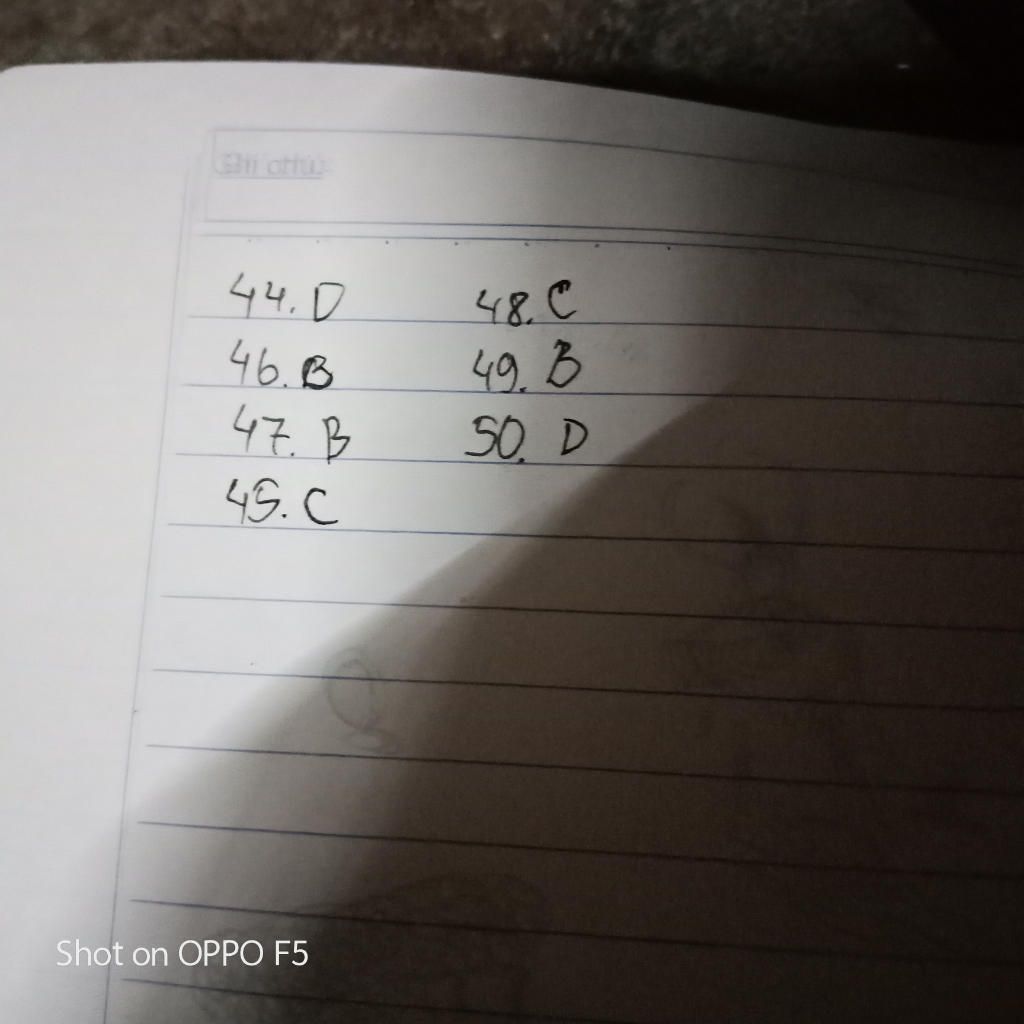 44. D
46. B
47. B
45. C
48. C
49. B
50. D
Shot on OPPO F5